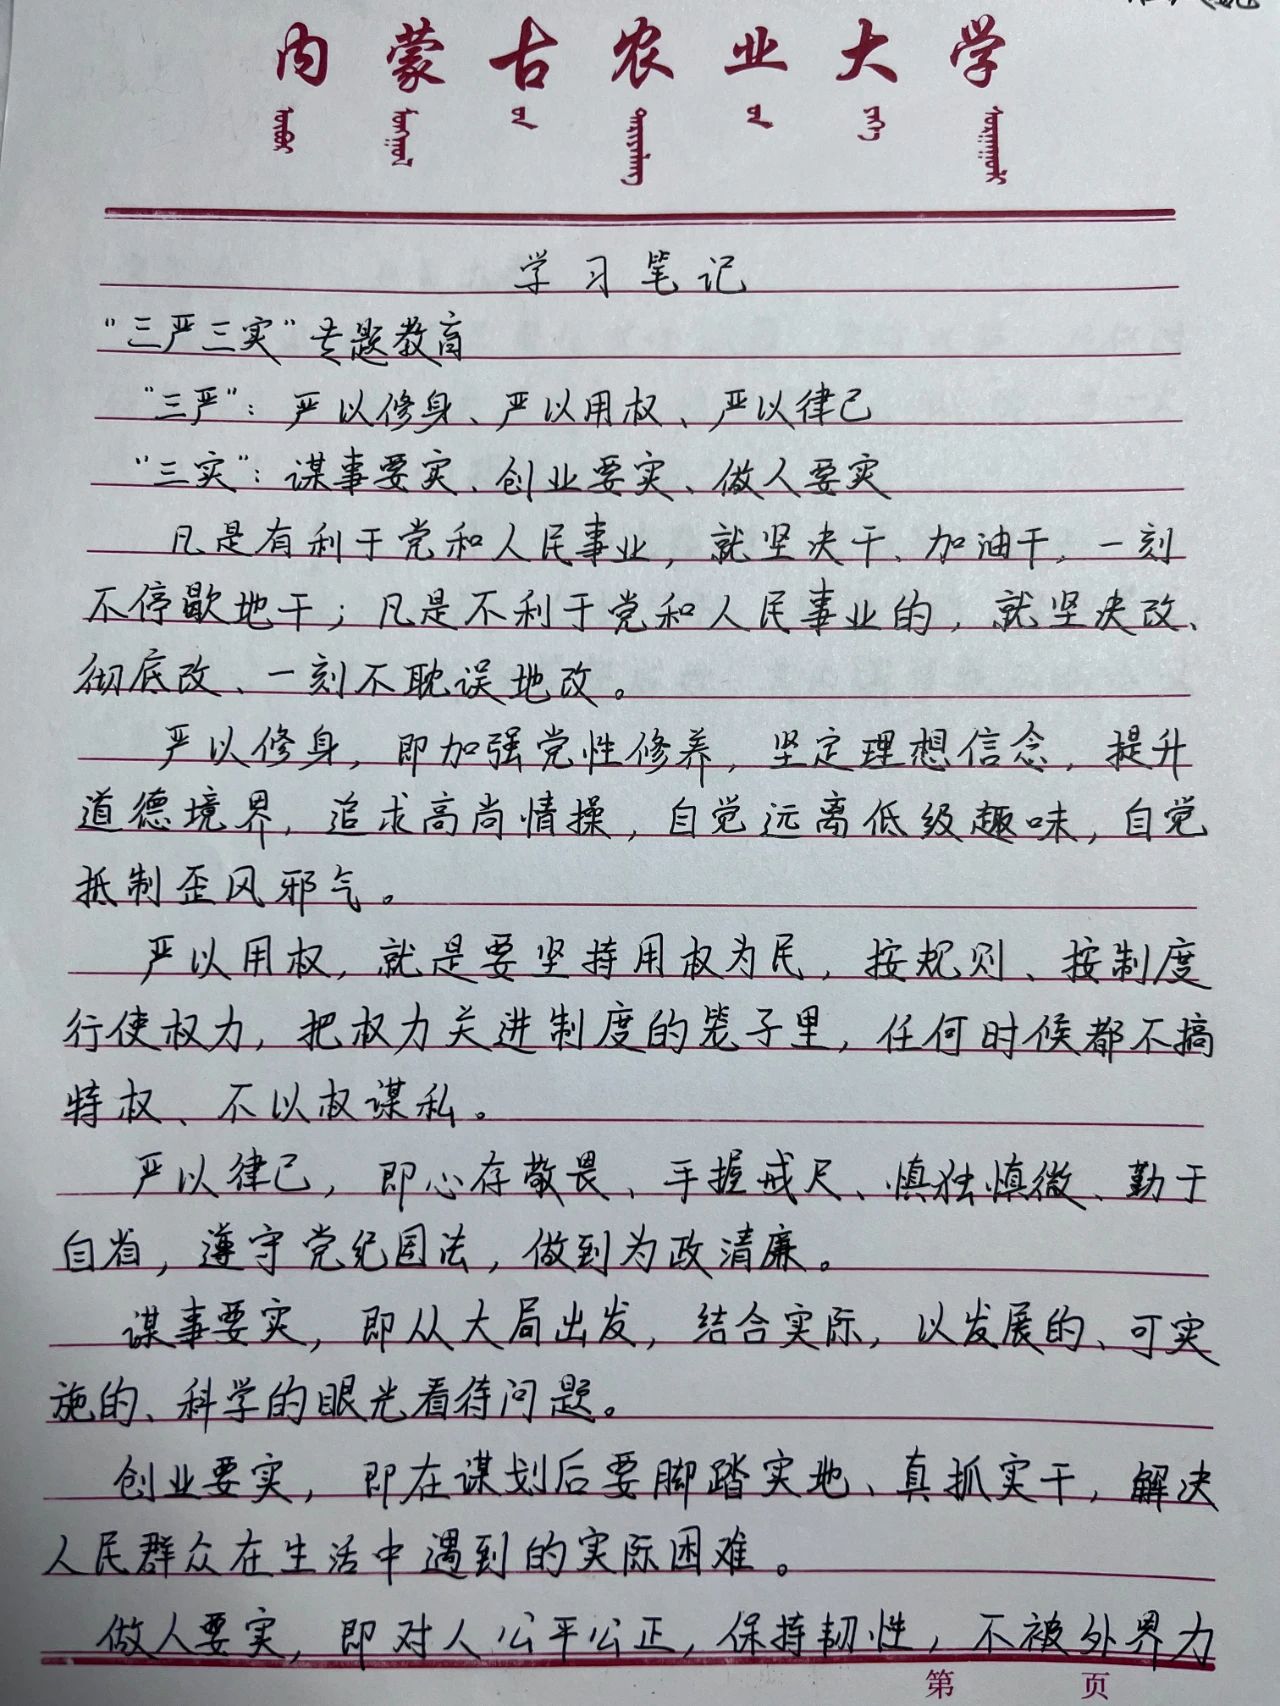 内蒙古农业大学
学习笔记
“三严三实”专题教育
“三严”：严以修身、严以用权、严以律己
“三实”：谋事要实、创业要实、做人要实
凡是有利于党和人民事业，就坚决干、加油干、一刻
不停歇地干；凡是不利于党和人民事业的，就坚决改、
彻底改、一刻不耽误地改。
严以修身，即加强党性修养，坚定理想信念，提升
道德境界，追求高尚情操，自觉远离低级趣味，自觉
抵制歪风邪气。
严以用权，就是要坚持用权为民，按规则、按制度
行使权力，把权力关进制度的笼子里，任何时候都不搞
特权、不以权谋私。
严以律己，即心存敬畏、手握戒尺、慎独慎微、勤于
自省，遵守党纪国法，做到为政清廉。
谋事要实，即从大局出发，结合实际，以发展的、可实
施的、科学的眼光看待问题。
创业要实，即在谋划后要脚踏实地、真抓实干，解决
人民群众在生活中遇到的实际困难。
做人要实，即对人公平公正，保持韧性，不被外界力
第 页